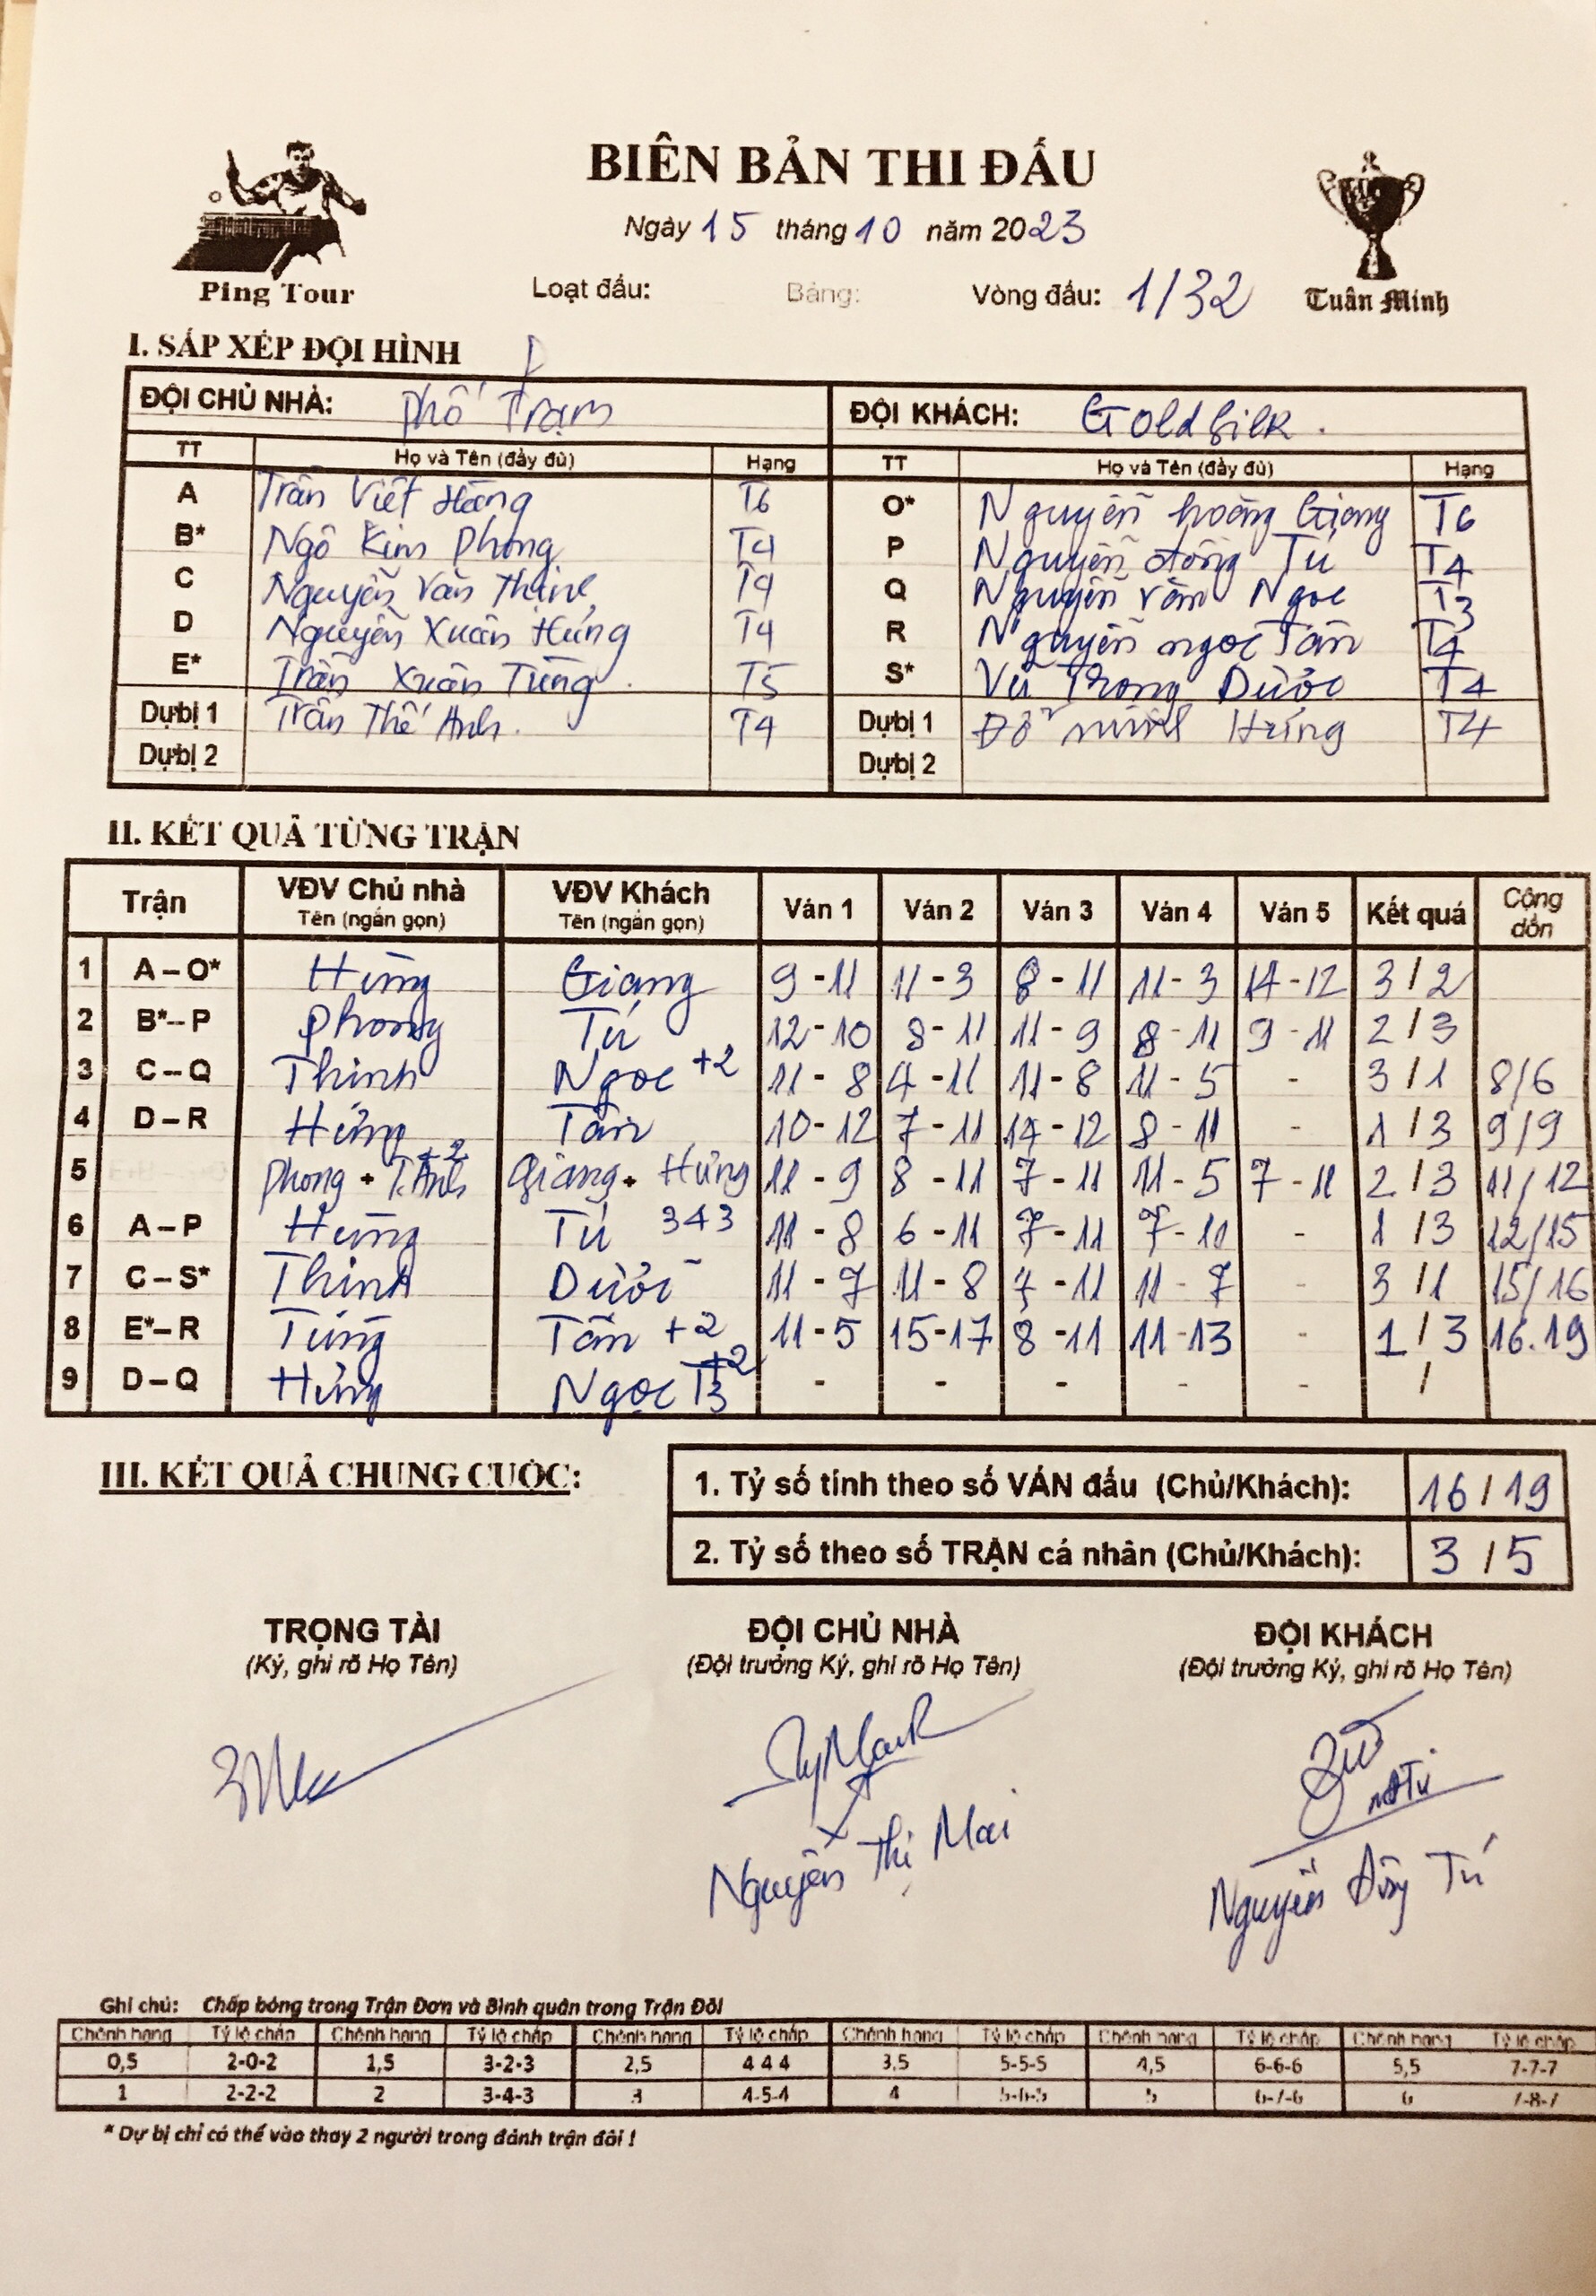 BIÊN BẢN THI ĐẤU
Ngày 15 tháng 10 năm 2023
Ping Tour
Loạt đấu: Bảng: Vòng đấu: 1/32
Tuấn Minh
I. SẮP XẾP ĐỘI HÌNH
ĐỘI CHỦ NHÀ: Phố Trạm ĐỘI KHÁCH: Goldsilk.
TT Họ và Tên (đầy đủ) Hạng TT Họ và Tên (đầy đủ) Hạng
A Trần Viết Hùng T6 O* Nguyễn hoàng Giang T6
B* Ngô Kim Phong T4 P Nguyễn đồng Tú T4
C Nguyễn Văn Thịnh T4 Q Nguyễn văn Ngọc T3
D Nguyễn Xuân Hưng T4 R Nguyễn ngọc Tân T4
E* Trần Xuân Tùng. T5 S* Vũ Trọng Dười T4
Dự bị 1 Trần Thế Anh. T4 Dự bị 1 Đỗ minh Hưng T4
Dự bị 2 Dự bị 2
II. KẾT QUẢ TỪNG TRẬN
Trận VĐV Chủ nhà Tên (ngắn gọn) VĐV Khách Tên (ngắn gọn) Ván 1 Ván 2 Ván 3 Ván 4 Ván 5 Kết quả Cộng dồn
1 A – O* Hùng Giang 9 - 11 11 - 3 8 - 11 11 - 3 14 - 12 3 / 2
2 B* -- P Phong Tú 12 - 10 8 - 11 11 - 9 8 - 11 9 - 11 2 / 3
3 C – Q Thịnh Ngọc +2 11 - 8 4 - 11 11 - 8 11 - 5 - 3 / 1 8/6
4 D – R Hưng Tân 10 - 12 7 - 11 14 - 12 8 - 11 - 1 / 3 9/9
5 Phong + T.Anh +2 Giang + Hưng 11 - 9 8 - 11 7 - 11 11 - 5 7 - 11 2 / 3 11/12
6 A – P Hùng Tú 343 11 - 8 6 - 11 7 - 11 7 - 11 - 1 / 3 12/15
7 C – S* Thịnh Dười 11 - 7 11 - 8 7 - 11 11 - 7 - 3 / 1 15/16
8 E* – R Tùng Tân +2 11 - 5 15 - 17 8 - 11 11 - 13 - 1 / 3 16.19
9 D – Q Hưng Ngọc T3 +2 - - - - - /
III. KẾT QUẢ CHUNG CUỘC:
1. Tỷ số tính theo số VÁN đấu (Chủ/Khách): 16 / 19
2. Tỷ số theo số TRẬN cá nhân (Chủ/Khách): 3 / 5
TRỌNG TÀI ĐỘI CHỦ NHÀ ĐỘI KHÁCH
(Ký, ghi rõ Họ Tên) (Đội trưởng Ký, ghi rõ Họ Tên) (Đội trưởng Ký, ghi rõ Họ Tên)
Nguyễn Thị Mai
Nguyễn Đồng Tú
Ghi chú: Chấp bóng trong Trận Đơn và Bình quân trong Trận Đôi
Chênh hạng Tỷ lệ chấp Chênh hạng Tỷ lệ chấp Chênh hạng Tỷ lệ chấp Chênh hạng Tỷ lệ chấp Chênh hạng Tỷ lệ chấp Chênh hạng Tỷ lệ chấp
0,5 2-0-2 1,5 3-2-3 2,5 4 4 4 3,5 5-5-5 4,5 6-6-6 5,5 7-7-7
1 2-2-2 2 3-4-3 3 4-5-4 4 5-6-5 5 6-7-6 6 7-8-7
* Dự bị chỉ có thể vào thay 2 người trong đánh trận đôi !